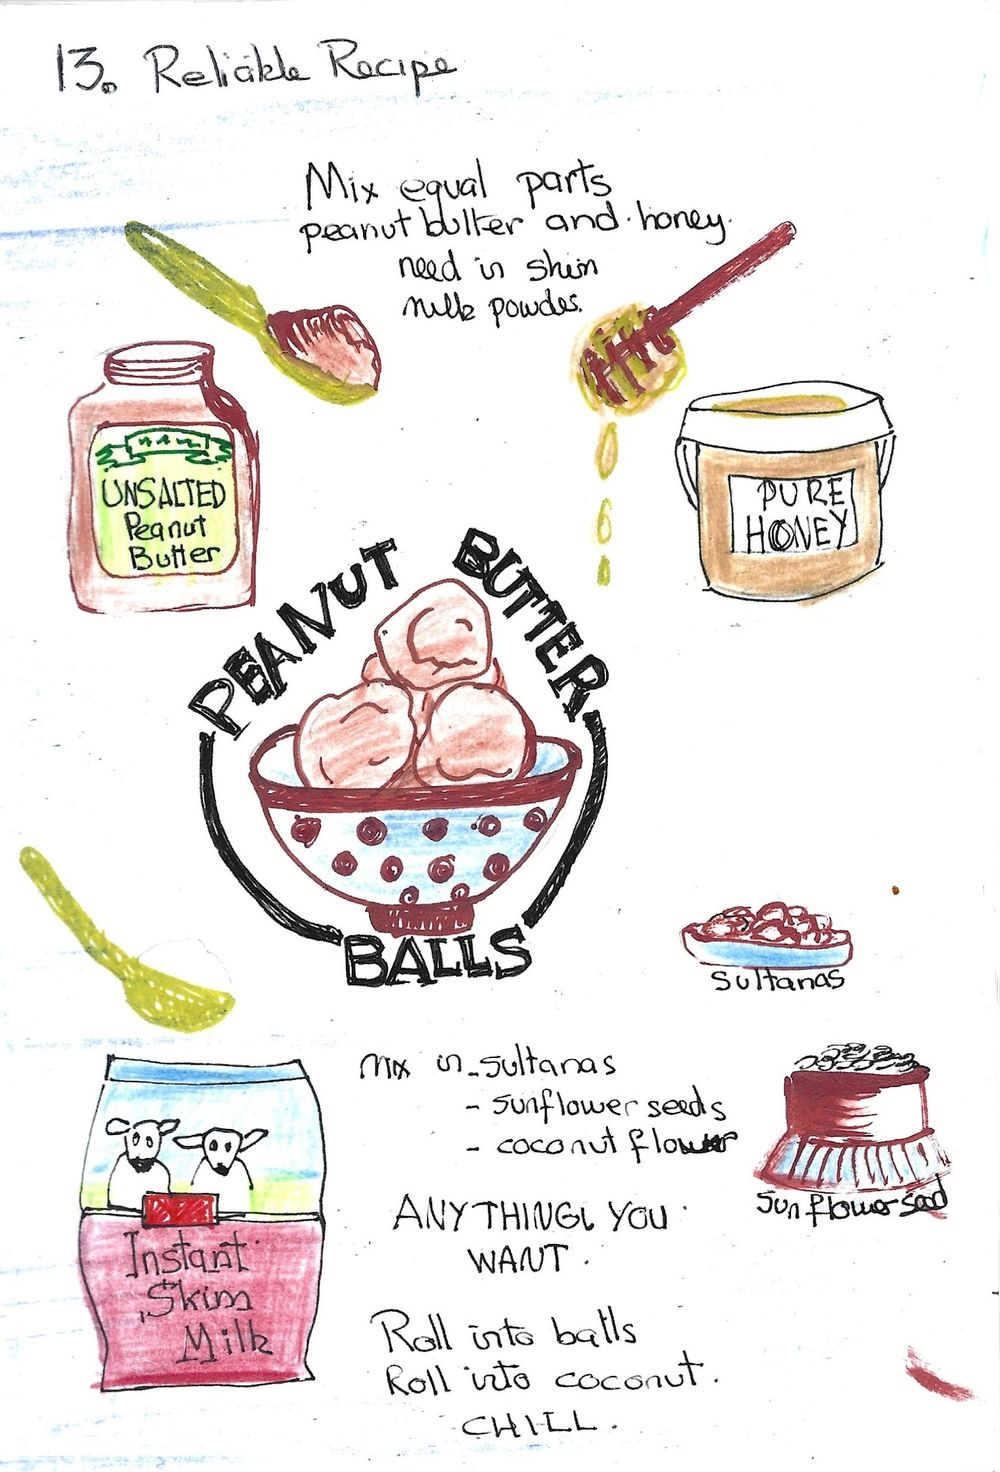 13. Reliable Recipe
Mix equal parts
peanut butter and honey.
need in skim
milk powder.
UNSALTED
Peanut
Butter
PURE
HONEY
PEANUT BUTTER
BALLS
Sultanas
Mix in - sultanas
- sunflower seeds
- coconut flower
sunflower seed
ANYTHING YOU
WANT.
Instant
Skim
Milk
Roll into balls
Roll into coconut.
CHILL.